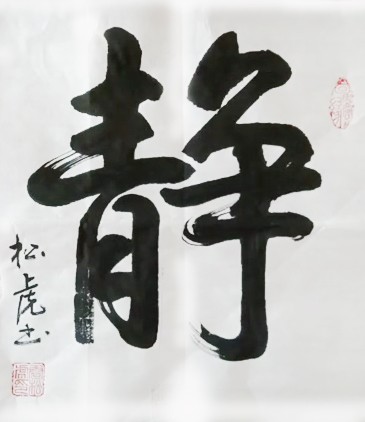 静
松虎书